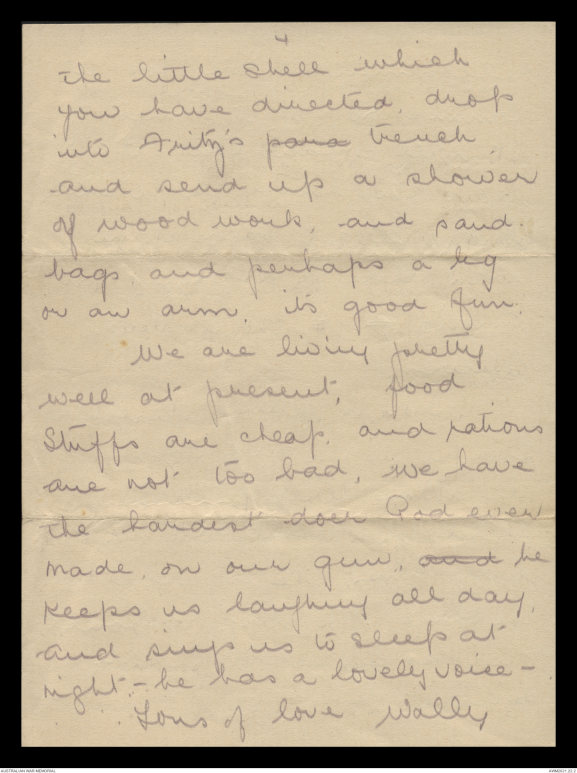 4
the little shell which
you have directed, drop
into Fritz's para trench,
and send up a shower
of wood work, and sand
bags, and perhaps a leg
or an arm, its good fun.
We are living pretty
well at present, food
stuffs are cheap, and rations
are not too bad, we have
the hardest doer God ever
made, on our gun, and he
keeps us laughing all day,
and sings us to sleep at
night, - he has a lovely voice -
Tons of love Wally
AUSTRALIAN WAR MEMORIAL